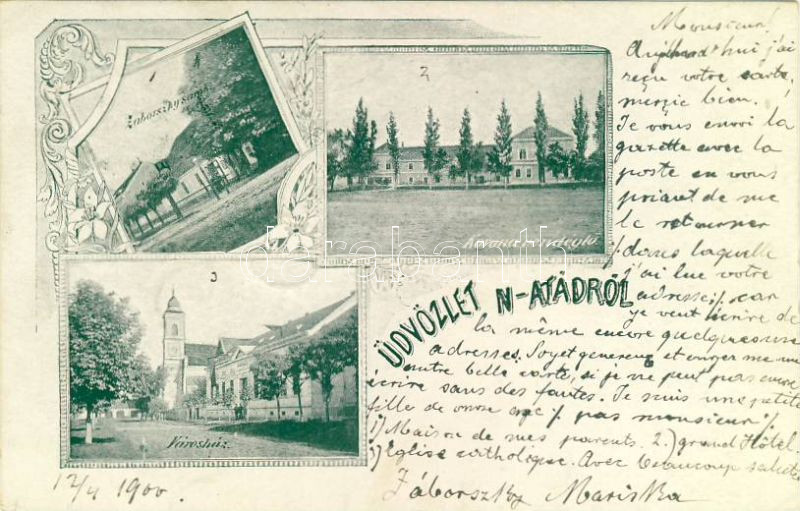 1
Zaborszky
2
Korona vendéglő
3
Városház
ÜDVÖZLET N-ATÁDRÓL
darabanth
Monsieur!
Aujourd'hui j'ai
reçu votre carte,
merçie bien.
Je vous envoi la
gazette avec la
poste en vous
priant de me
le retourner
/:dans laquelle
j'ai lue votre
adresse:/, car
je veut écrire de
la même encore quelques-une
adresses. Soyet genereux et me
autre belle carte, si je ne peut pas
écrire sans des fautes. Je suis une petite
fille de onze :/ pas monsieur:/
1) Maison de mes parents. 2.) grand Hôtel.
3) Église catholique. Avec beaucoup
Záborszky Mariska
12/4 1900.